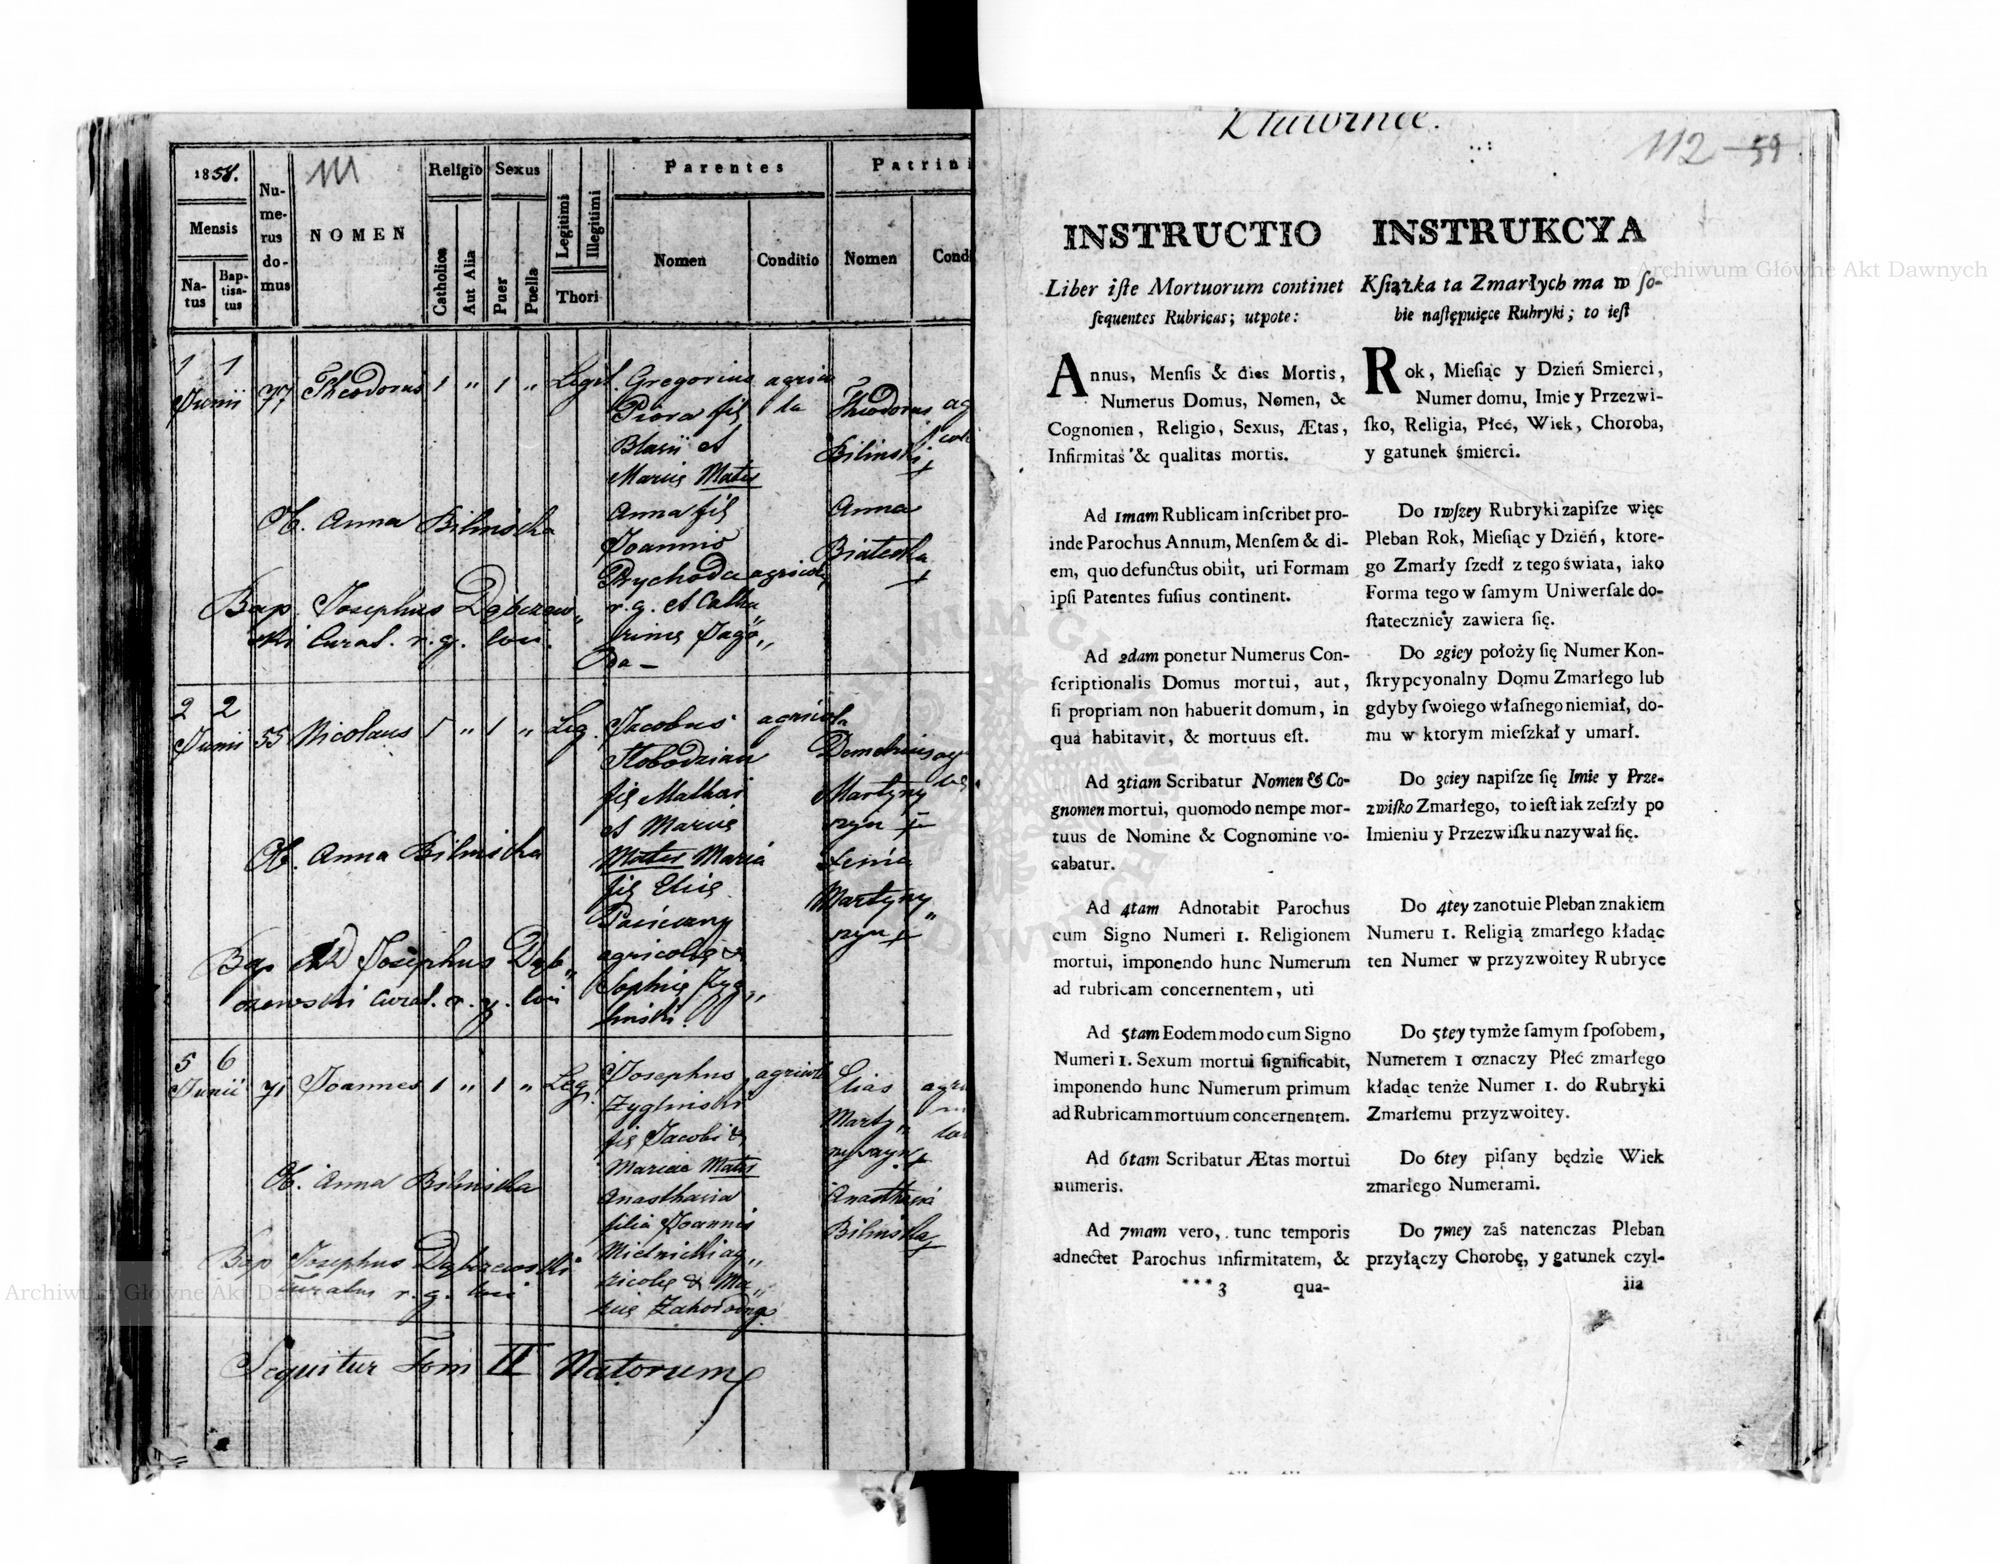 1858.
111
Mensis
Na-
tus
Bap-
tisa-
tus
Nu-
me-
rus
do-
mus
NOMEN
Religio
Catholica
Aut Alia
Sexus
Puer
Puella
Legitimi
Illegitimi
Thori
Parentes
Nomen
Conditio
Patrini
Nomen
Condi
1 1
Junii 77 Theodorus 1 " 1 " Legit. Gregorius agrico
Pióra fil la Theodorus ag
Blasii et
Bilinski
Mariæ Mater
Ob. Anna Bilinska Anna fil Anna
Joannis
Przychoda agricolę
Bap. Josephus Dąbczew„ r. g. et Catha
ski Curat. r. g. loci. rinæ Jago„
da –
2 2
Junii 55 Nicolaus 1 " 1 " Leg. Jacobus agricola
Słobodzian Demetrius ag
fil Mathæi Martyny
et Mariæ szyn +
Ob. Anna Bilinska Mater Maria Xenia
fil Eliæ Martyny„
szyn +
Bap Josephus Dąb„ agricolę &
czewski Curat. r. g. loci Sophiæ Zyg„
linski.
5 6
Junii 71 Joannes 1 " 1 " Leg. Josephus agricol Elias agri
Zyglinski
fil Jacobi & Marty„
Mariæ Mater nyszyn +
Ob. Anna Bilinska Anasthasia Anasthasia
filia Joannis Bilinska
Bap Josephus Dąbczewski Mielnicki ag„
Curatus r. g. loci ricolę & Ma„
riæ Zahorodną
Sequitur Tom II Natorum
112 – 59
INSTRUCTIO
Liber iſte Mortuorum continet
ſequentes Rubricas; utpote:
Annus, Menſis & dies Mortis,
Numerus Domus, Nomen, &
Cognomen, Religio, Sexus, Ætas,
Infirmitas & qualitas mortis.
Ad 1mam Rublicam inſcribet pro-
inde Parochus Annum, Menſem & di-
em, quo defunctus obiit, uti Formam
ipſi Patentes fuſius continent.
Ad 2dam ponetur Numerus Con-
ſcriptionalis Domus mortui, aut,
ſi propriam non habuerit domum, in
qua habitavit, & mortuus eſt.
Ad 3tiam Scribatur Nomen & Co-
gnomen mortui, quomodo nempe mor-
tuus de Nomine & Cognomine vo-
cabatur.
Ad 4tam Adnotabit Parochus
cum Signo Numeri 1. Religionem
mortui, imponendo hunc Numerum
ad rubricam concernentem, uti
Ad 5tam Eodem modo cum Signo
Numeri 1. Sexum mortui ſignificabit,
imponendo hunc Numerum primum
ad Rubricam mortuum concernentem.
Ad 6tam Scribatur Ætas mortui
numeris.
Ad 7mam vero, tunc temporis
adnectet Parochus infirmitatem, &
*** 3 qua-
INSTRUKCYA
Kſiążka ta Zmarłych ma w ſo-
bie naſtępuięce Rubryki; to ieſt
Rok, Mieſiąc y Dzień Smierci,
Numer domu, Imie y Przezwi-
ſko, Religia, Płeć, Wiek, Choroba,
y gatunek śmierci.
Do 1wſzey Rubryki zapiſze więc
Pleban Rok, Mieſiąc y Dzień, ktore-
go Zmarły ſzedł z tego świata, iako
Forma tego w ſamym Uniwerſale do-
ſtateczniey zawiera ſię.
Do 2giey położy ſię Numer Kon-
ſkrypcyonalny Domu Zmarłego lub
gdyby ſwoiego właſnego niemiał, do-
mu w ktorym mieſzkał y umarł.
Do 3ciey napiſze ſię Imie y Prze-
zwiſko Zmarłego, to ieſt iak zeſzły po
Imieniu y Przezwiſku nazywał ſię.
Do 4tey zanotuie Pleban znakiem
Numeru 1. Religią zmarłego kładąc
ten Numer w przyzwoitey Rubryce
Do 5tey tymże ſamym ſpoſobem,
Numerem 1 oznaczy Płeć zmarłego
kładąc tenże Numer 1. do Rubryki
Zmarłemu przyzwoitey.
Do 6tey piſany będzie Wiek
zmarłego Numerami.
Do 7mey zaś natenczas Pleban
przyłączy Chorobę, y gatunek czyl-
iia
Archiwum Główne Akt Dawnych
Archiwum Główne Akt Dawnych